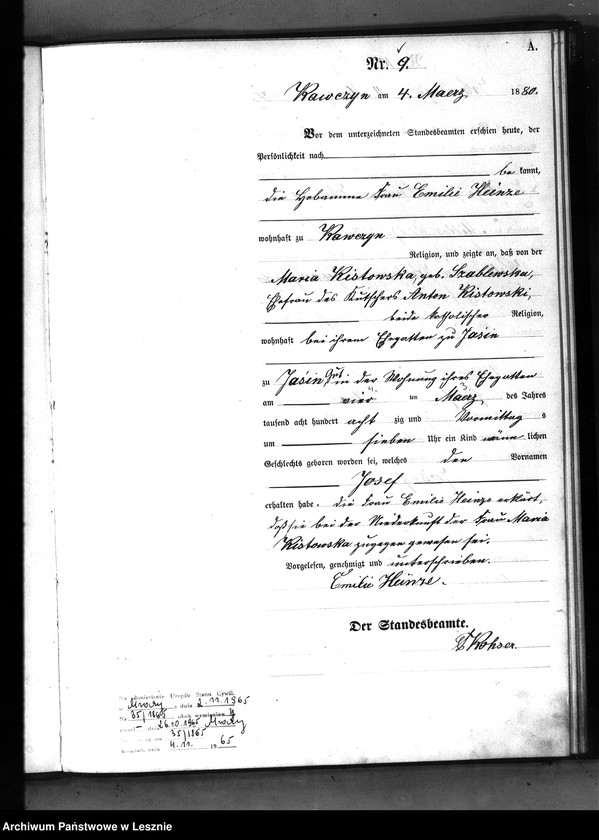 A.
Nr. 9.
Kawczyn am 4. Maerz 1880.
Vor dem unterzeichneten Standesbeamten erschien heute, der
Persönlichkeit nach
be kannt,
die Hebamme Frau Emilie Heinze
wohnhaft zu Kawczyn
Religion, und zeigte an, daß von der
Maria Kistowska, geb. Szablewska,
Ehefrau des Kutschers Anton Kistowski,
beide katholischer Religion,
wohnhaft bei ihrem Ehegatten zu Jaśin
zu Jaśin Gut in der Wohnung ihres Ehegatten
am vier ten Maerz des Jahres
tausend acht hundert acht zig und Vormittag s
um sieben Uhr ein Kind männ lichen
Geschlechts geboren worden sei, welches den Vornamen
Josef
erhalten habe. Die Frau Emilie Heinze erklärt,
daß sie bei der Niederkunft der Frau Maria
Kistowska zugegen gewesen sei.
Vorgelesen, genehmigt und unterschrieben.
Emilie Heinze.
Der Standesbeamte.
Rohser.
Urzędu Stanu Cywil.
Mroczy z dnia 2.11.1965
Nr 35/1865
dnia 26.10.1965 Mroczy
35/1865
4.11. 1965
Archiwum Państwowe w Lesznie